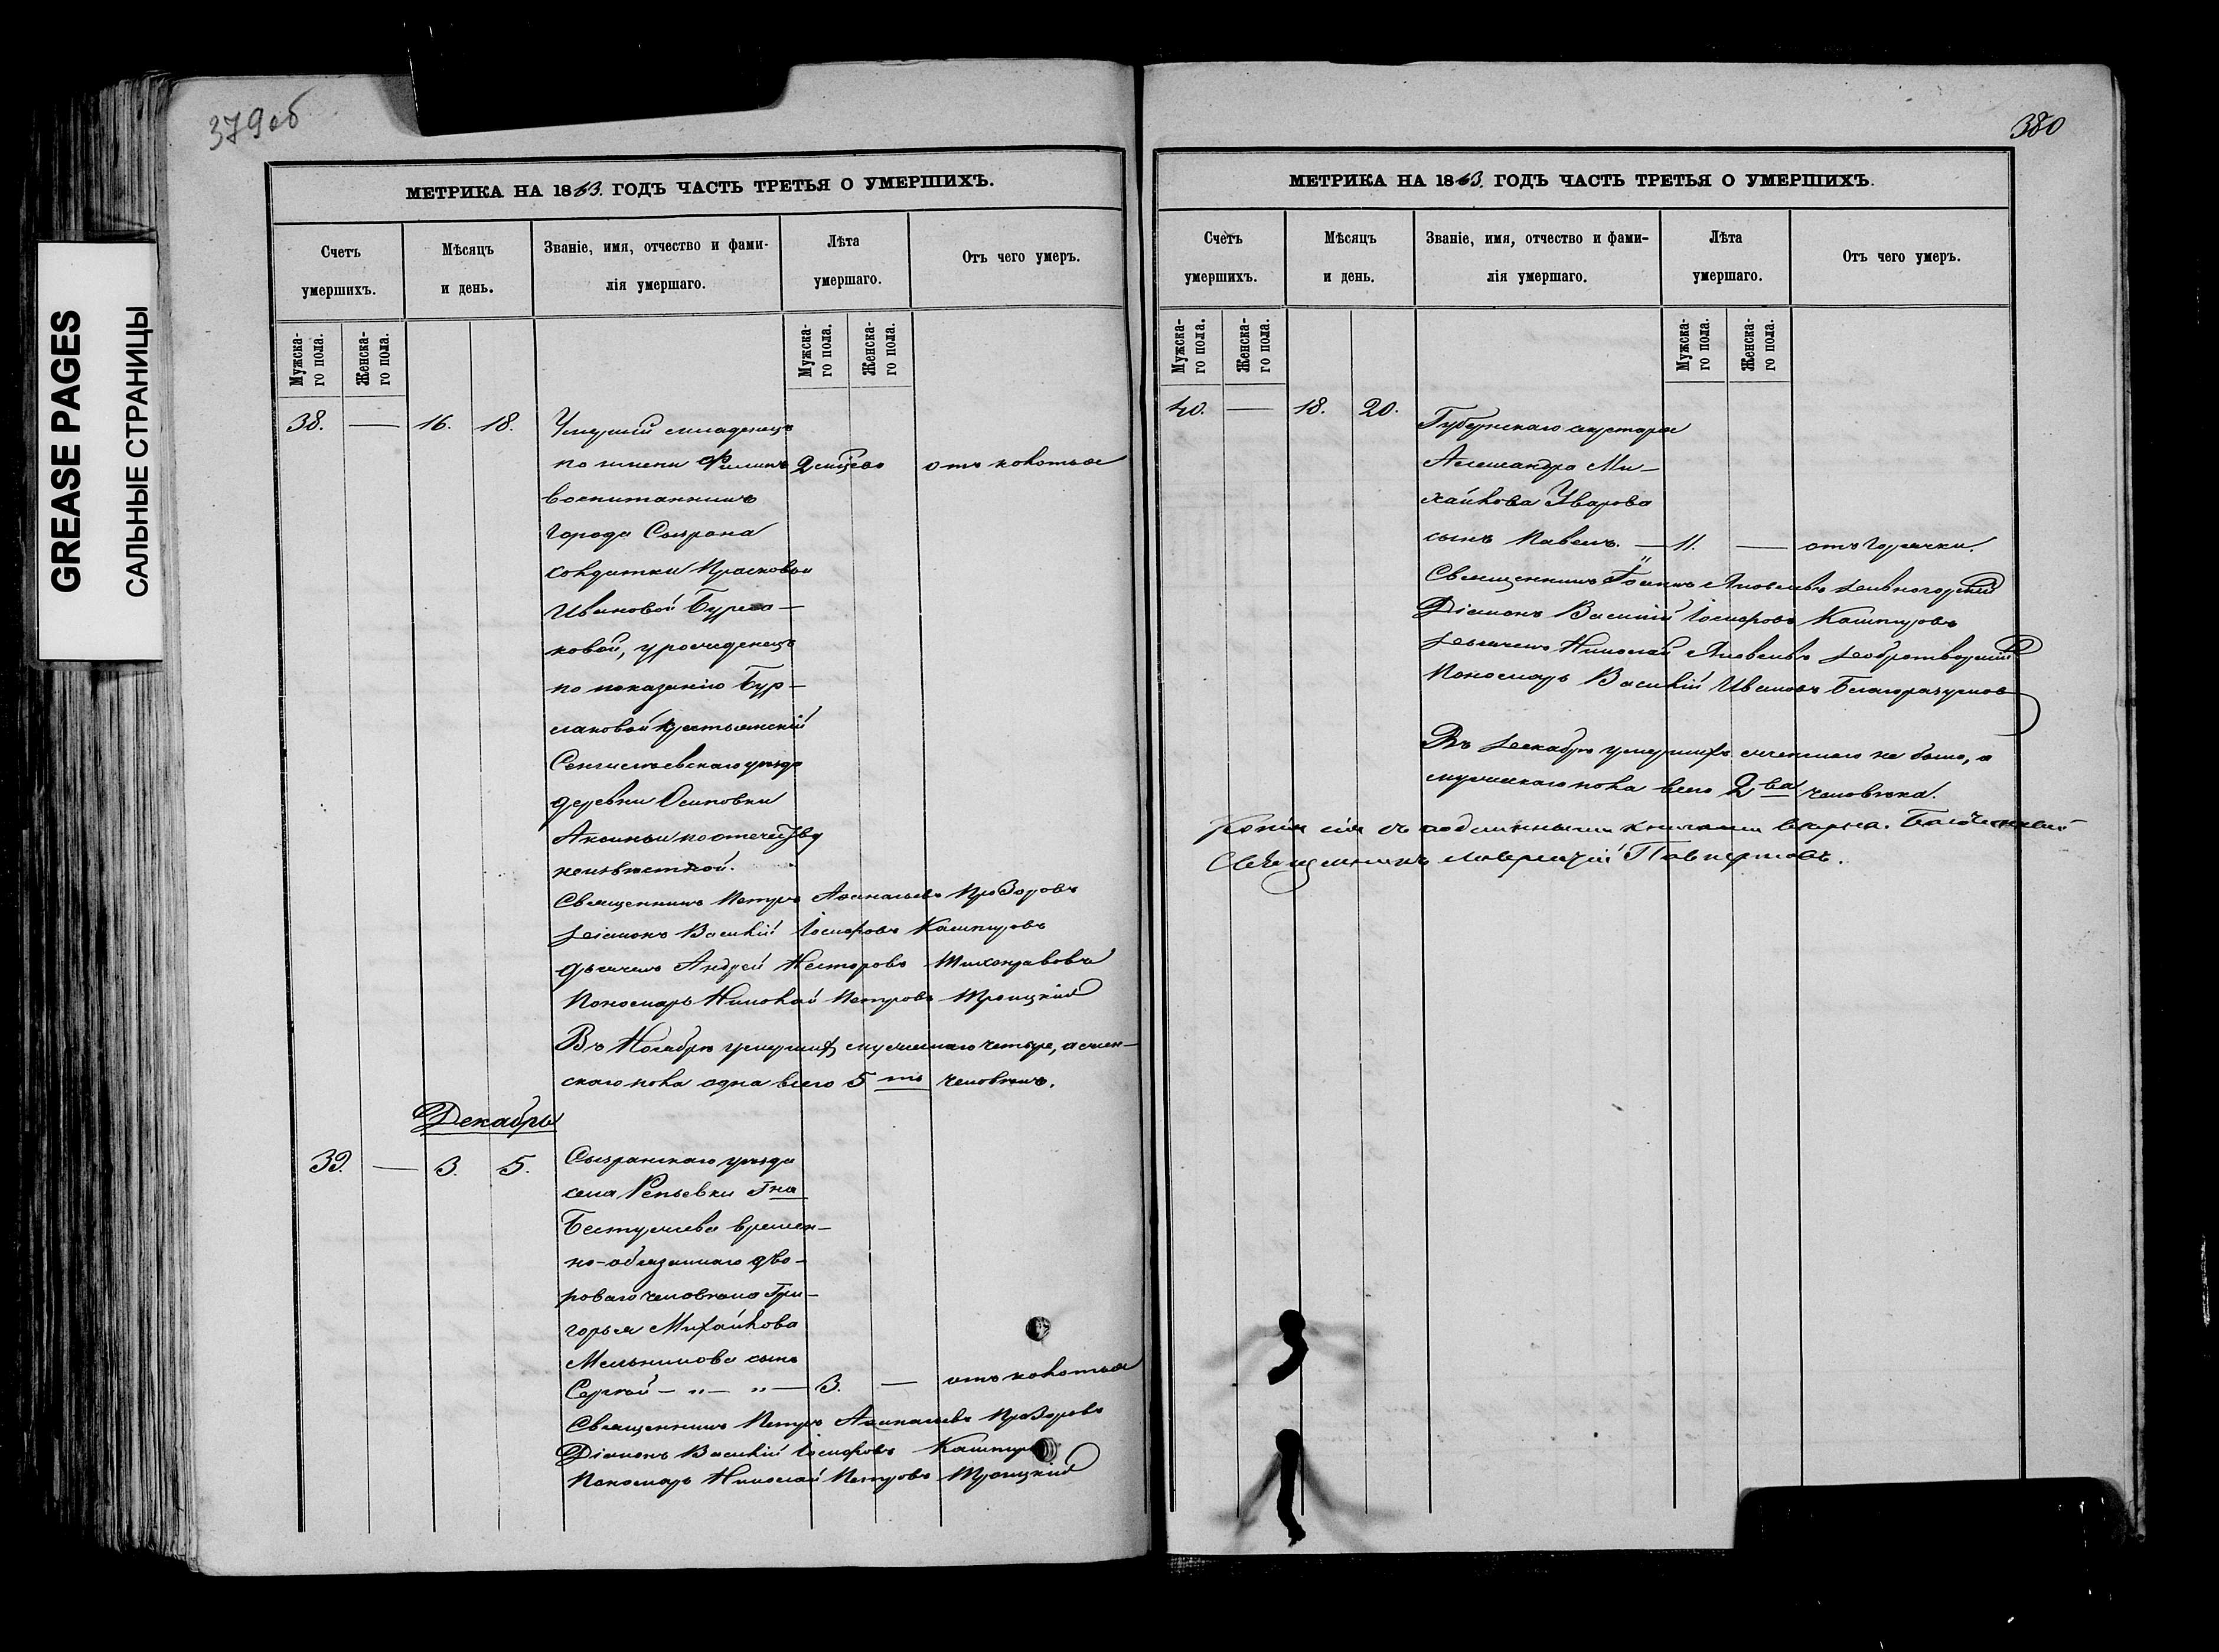 379об
МЕТРИКА НА 1863. ГОДЪ ЧАСТЬ ТРЕТЬЯ О УМЕРШИХЪ.
Счетъ умершихъ.
Мѣсяцъ и день.
Званіе, имя, отчество и фами-
лія умершаго.
Лѣта умершаго.
Отъ чего умеръ.
Мужска-
го пола.
Женска-
го пола.
Мужска-
го пола.
Женска-
го пола.
38. — 16. 18. Умершій младенецъ
по имени Филипъ 2 мѣсяцевъ отъ колотья
воспитанникъ
города Сызрана
солдатки Прасковьи
Ивановой Бурла-
ковой, урожденецъ
по показанію Бур-
лаковой крестьянскій
Сенгилѣевскаго уѣзда
деревни Осиповки
Аксиньи по отечеству
неизвѣстной.
Священникъ Петръ Аѳанасьевъ Прозоровъ
Діаконъ Василій Іосифовъ Кашпуровъ
дьячекъ Андрей Несторовъ Тихонравовъ
Пономарь Николай Петровъ Троицкій
Въ Ноябрѣ умершихъ мужескаго четыре, а жен-
скаго пола одна всего 5 ть человѣкъ.
Декабрь
39. — 3. 5. Сызранскаго уѣзда
села Репьевки Гна
Бестужева времен-
но-обязаннаго дво-
роваго человѣка Гри-
горья Михайлова
Мельникова сынъ
Сергѣй — „ — „ — 3. — отъ колотья
Священникъ Петръ Аѳанасьевъ Прозоровъ
Діаконъ Василій Іосифовъ Кашпуровъ
Пономарь Николай Петровъ Троицкій
380
МЕТРИКА НА 1863. ГОДЪ ЧАСТЬ ТРЕТЬЯ О УМЕРШИХЪ.
Счетъ умершихъ.
Мѣсяцъ и день.
Званіе, имя, отчество и фами-
лія умершаго.
Лѣта умершаго.
Отъ чего умеръ.
Мужска-
го пола.
Женска-
го пола.
Мужска-
го пола.
Женска-
го пола.
40. — 18. 20. Губернскаго
Александра Ми-
хайлова Уварова
сынъ Павелъ. — 11. — отъ горячки.
Священникъ Іоаннъ Яковлевъ Дивногорскій
Діаконъ Василій Іосифовъ Кашпуровъ
Дьячекъ Николай Яковлевъ Добротворскій
Пономарь Василій Ивановъ Благоразумовъ
Въ Декабрѣ умершихъ женскаго не было, а
мужескаго пола всего 2 ва человѣка.
Копія сія съ подлинными книгами вѣрна. Благочинный
Священникъ Лаврентій
GREASE PAGES
САЛЬНЫЕ СТРАНИЦЫ